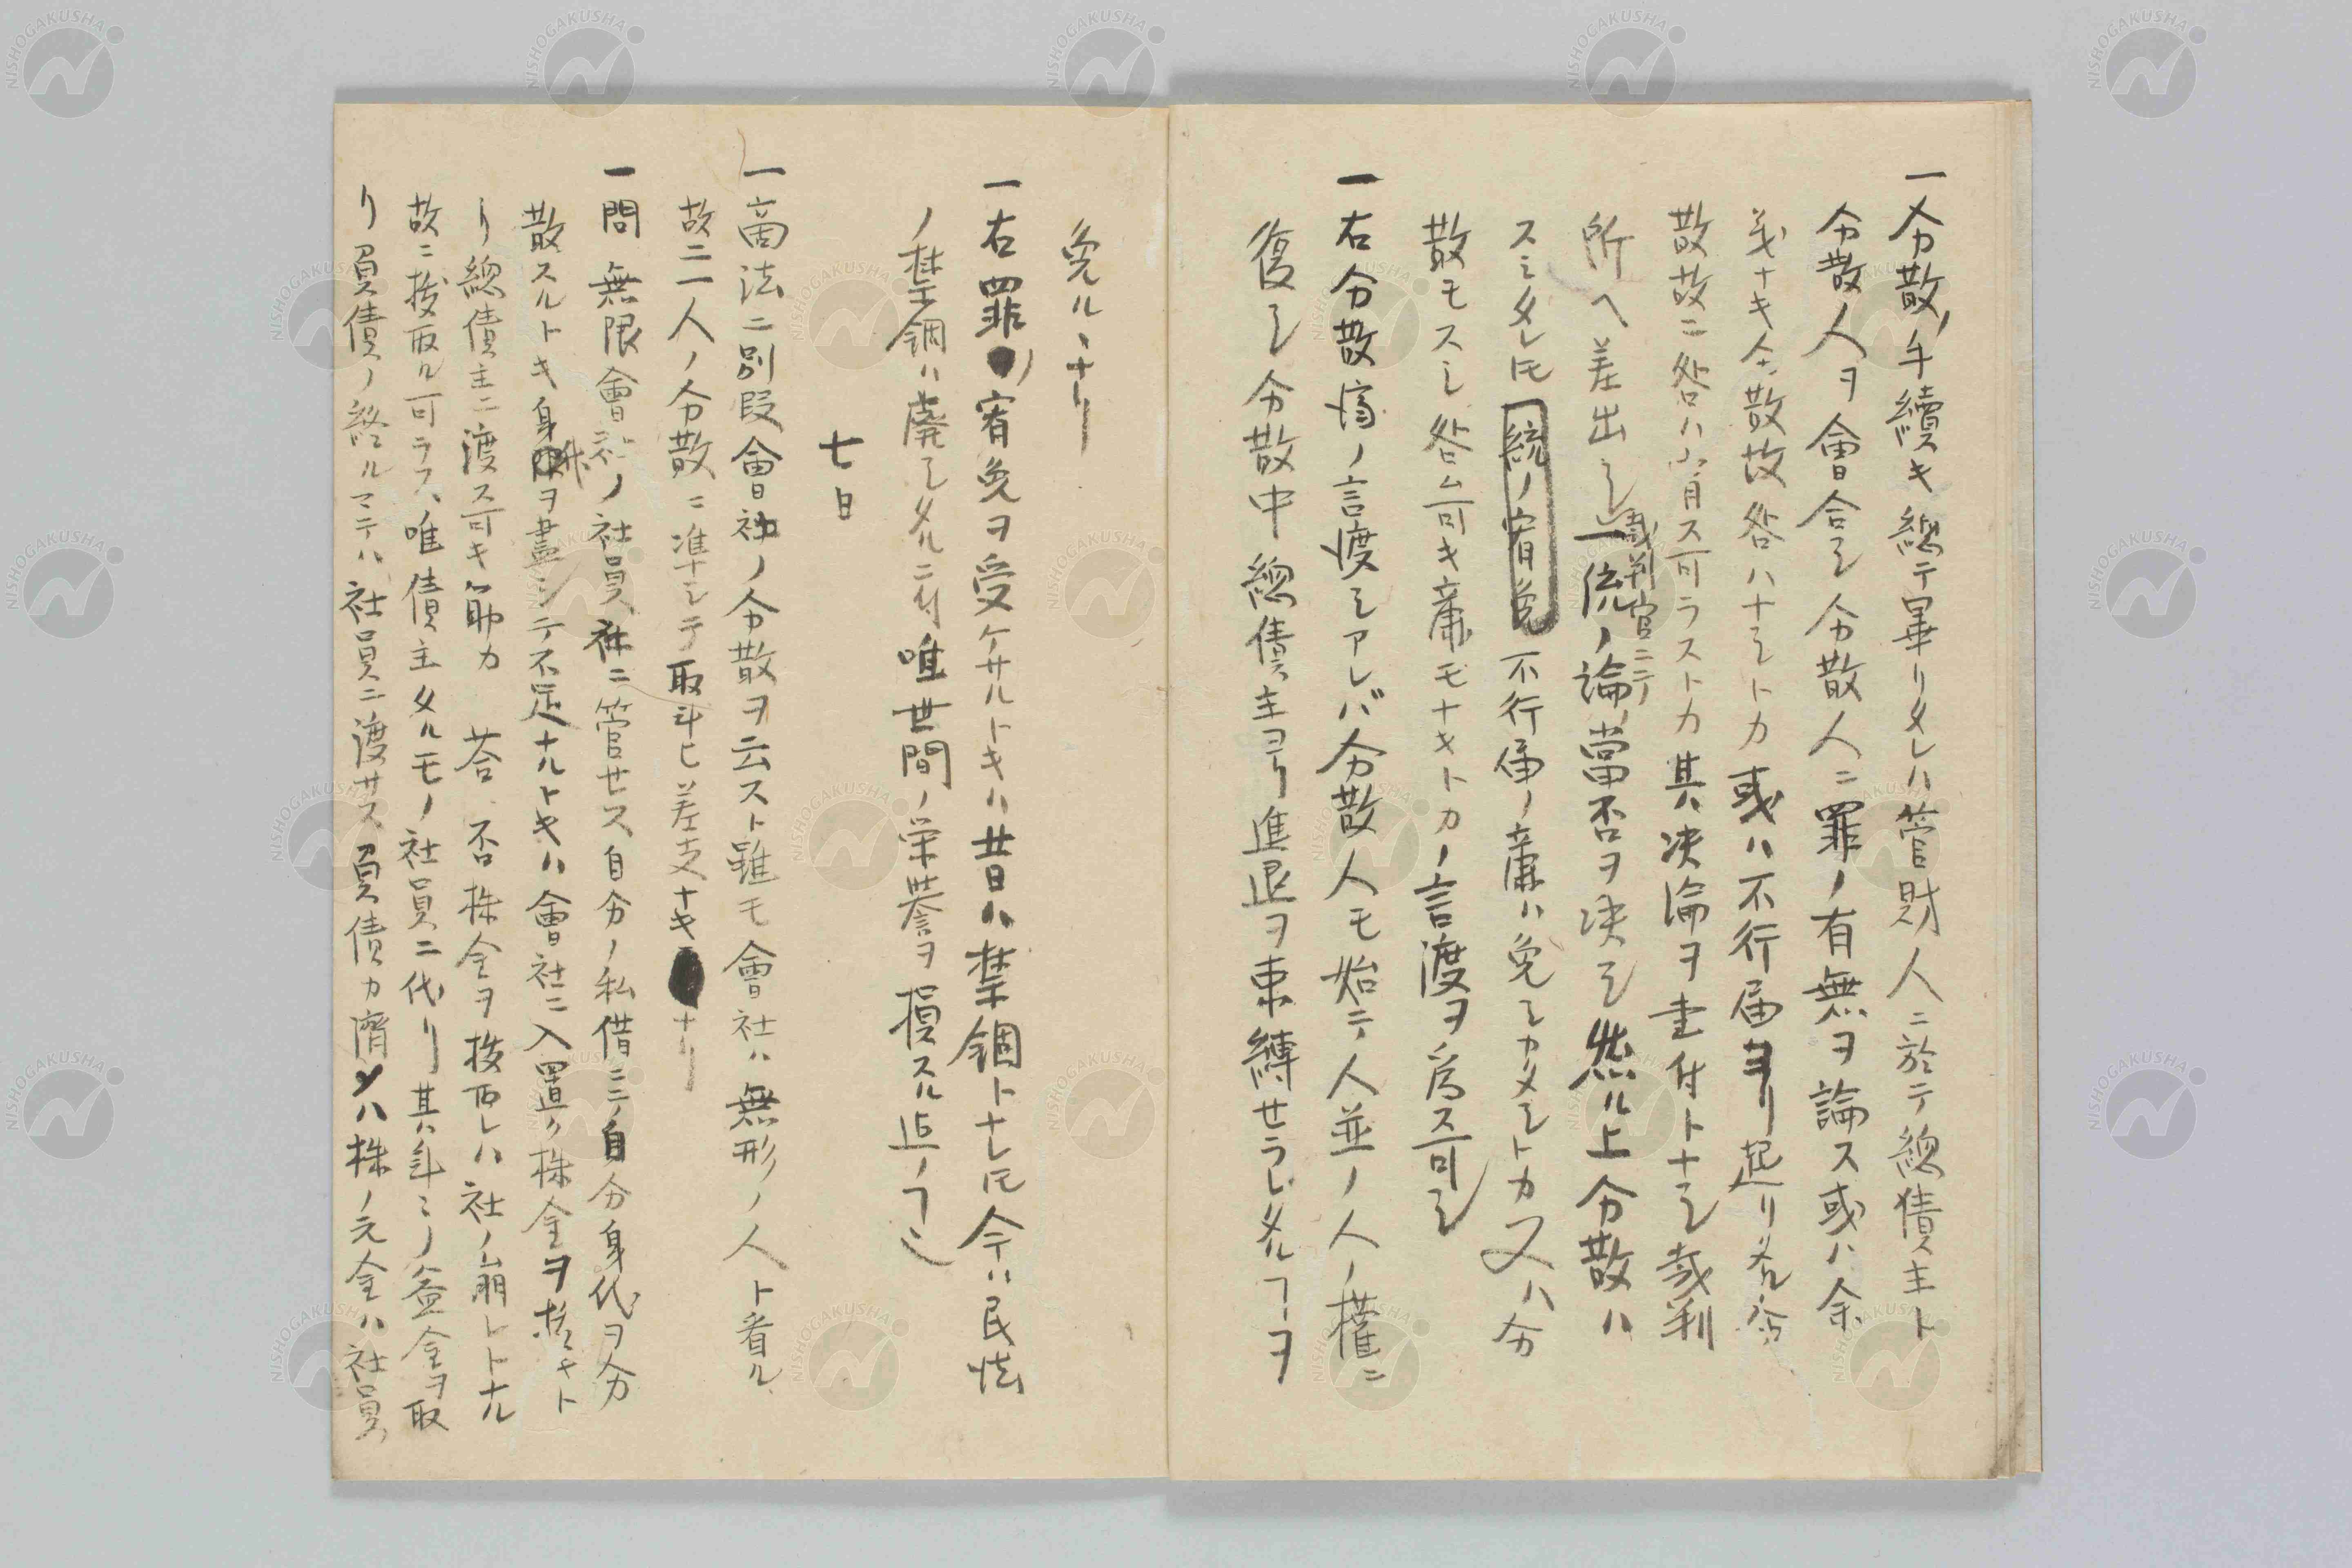 一分散ノ手續キ總テ畢リタレハ管財人ニ於テ總債主ト
分散人ヲ會合シ分散人ニ罪ノ有無ヲ論ス或ハ余
義ナキ分散故咎ハナシトカ或ハ不行届ヨリ起リタル分
散故ニ咎ハ宥ス可ラストカ其決論ヲ書付トナシ裁判
所ヘ差出シ裁判官ニテ一統ノ論ノ當否ヲ決シ然ル上分散ハ
スミタレ𪜈統ノ宥免不行届ノ廉ハ免シカタシトカ又ハ分
散モスミ咎ム可キ廉モナキトカノ言渡ヲ為ス可シ
一右分散済ノ言渡シアレバ分散人モ始テ人並ノ人ノ權ニ
復シ分散中總債主ヨリ進退ヲ束縛セラレタルヿヲ
免ルヽナリ
一右罪ノ宥免ヲ受ケサルトキハ昔ハ禁錮トナレ𪜈今ハ民法
ノ禁錮ハ廃シタルニ付唯世間ノ栄誉ヲ損スル迄ノヿ也
七日
一商法ニ別段會社ノ分散ヲ云スト雖モ會社ハ無形ノ人ト看ル
故ニ一人ノ分散ニ準シテ取斗ヒ差支ナキナリ
一問 無限會社ノ社員社ニ管セス自分ノ私借ニテ自分身代ヲ分
散スルトキ身代ヲ盡シテ不足ナルトキハ會社ニ入置ク株金ヲ抜キト
リ總債主ニ渡ス可キ筋カ 荅 否株金ヲ抜取レハ社ノ崩レトナル
故ニ抜取ル可ラス唯債主タルモノ社員ニ代リ其年〻ノ益金ヲ取
リ負債ノ終ルマテハ社員ニ渡サス負債カ濟メハ株ノ元金ハ社員